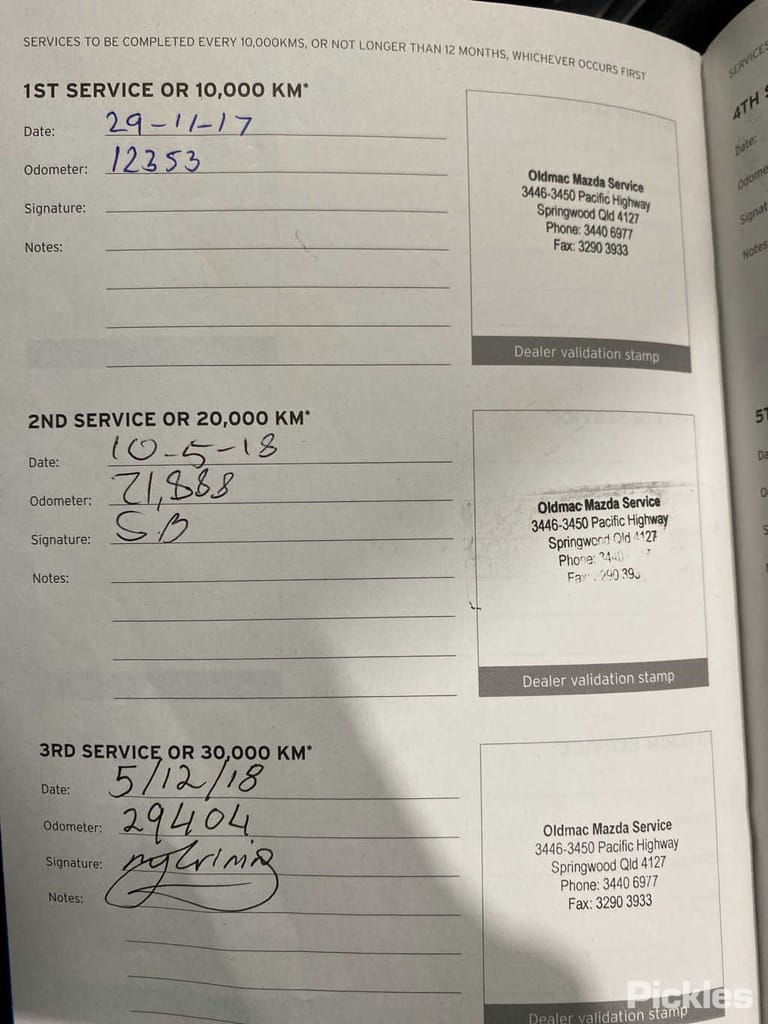 SERVICES TO BE COMPLETED EVERY 10,000KMS, OR NOT LONGER THAN 12 MONTHS, WHICHEVER OCCURS FIRST
1ST SERVICE OR 10,000 KM*
Date: 29-11-17
Odometer: 12353
Signature:
Notes:
Oldmac Mazda Service
3446-3450 Pacific Highway
Springwood Qld 4127
Phone: 3440 6977
Fax: 3290 3933
Dealer validation stamp
2ND SERVICE OR 20,000 KM*
Date: 10-5-18
Odometer: 21,888
Signature: SB
Notes:
Oldmac Mazda Service
3446-3450 Pacific Highway
Springwood Qld 4127
Phone:
Dealer validation stamp
3RD SERVICE OR 30,000 KM*
Date: 5/12/18
Odometer: 29404
Signature:
Notes:
Oldmac Mazda Service
3446-3450 Pacific Highway
Springwood Qld 4127
Phone: 3440 6977
Fax: 3290 3933
Dealer validation stamp
SERVICES
4TH
Date:
Notes
Pickles